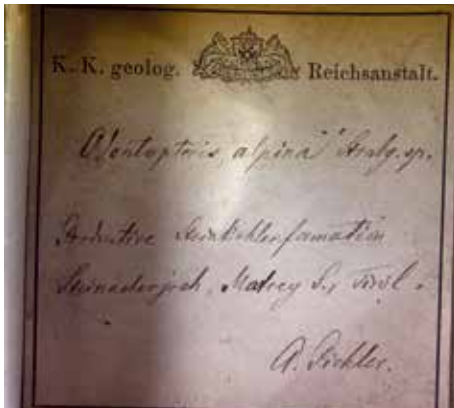 K. K. geolog. Reichsanstalt.
Odontopteris alpina Sternbg. sp.
Productive Steinkohlenformation
Steinacherjoch, Matrey S., Tirol.
A. Pichler.